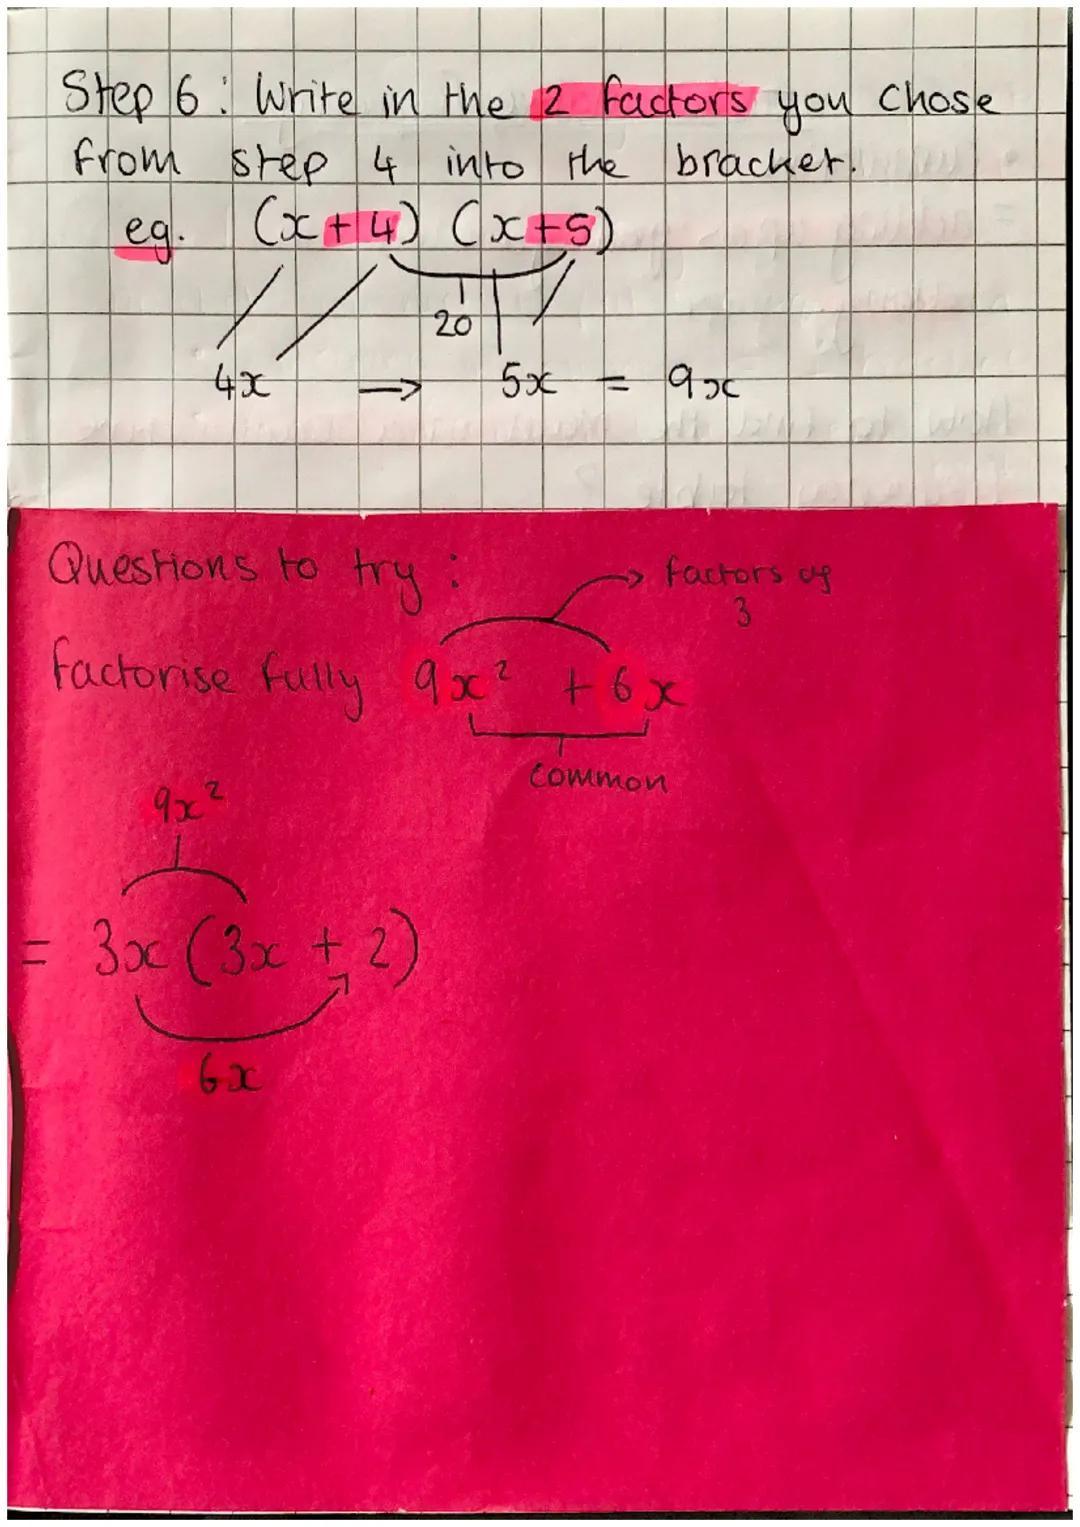 Step 6: Write in the 2 factors you chose
from step 4 into the bracket.
eg. (x+4) (x+5)
20
4x → 5x = 9x
Questions to try:
→ factors of
3
factorise fully 9x² + 6x
common
9x²
= 3x (3x + 2)
6x